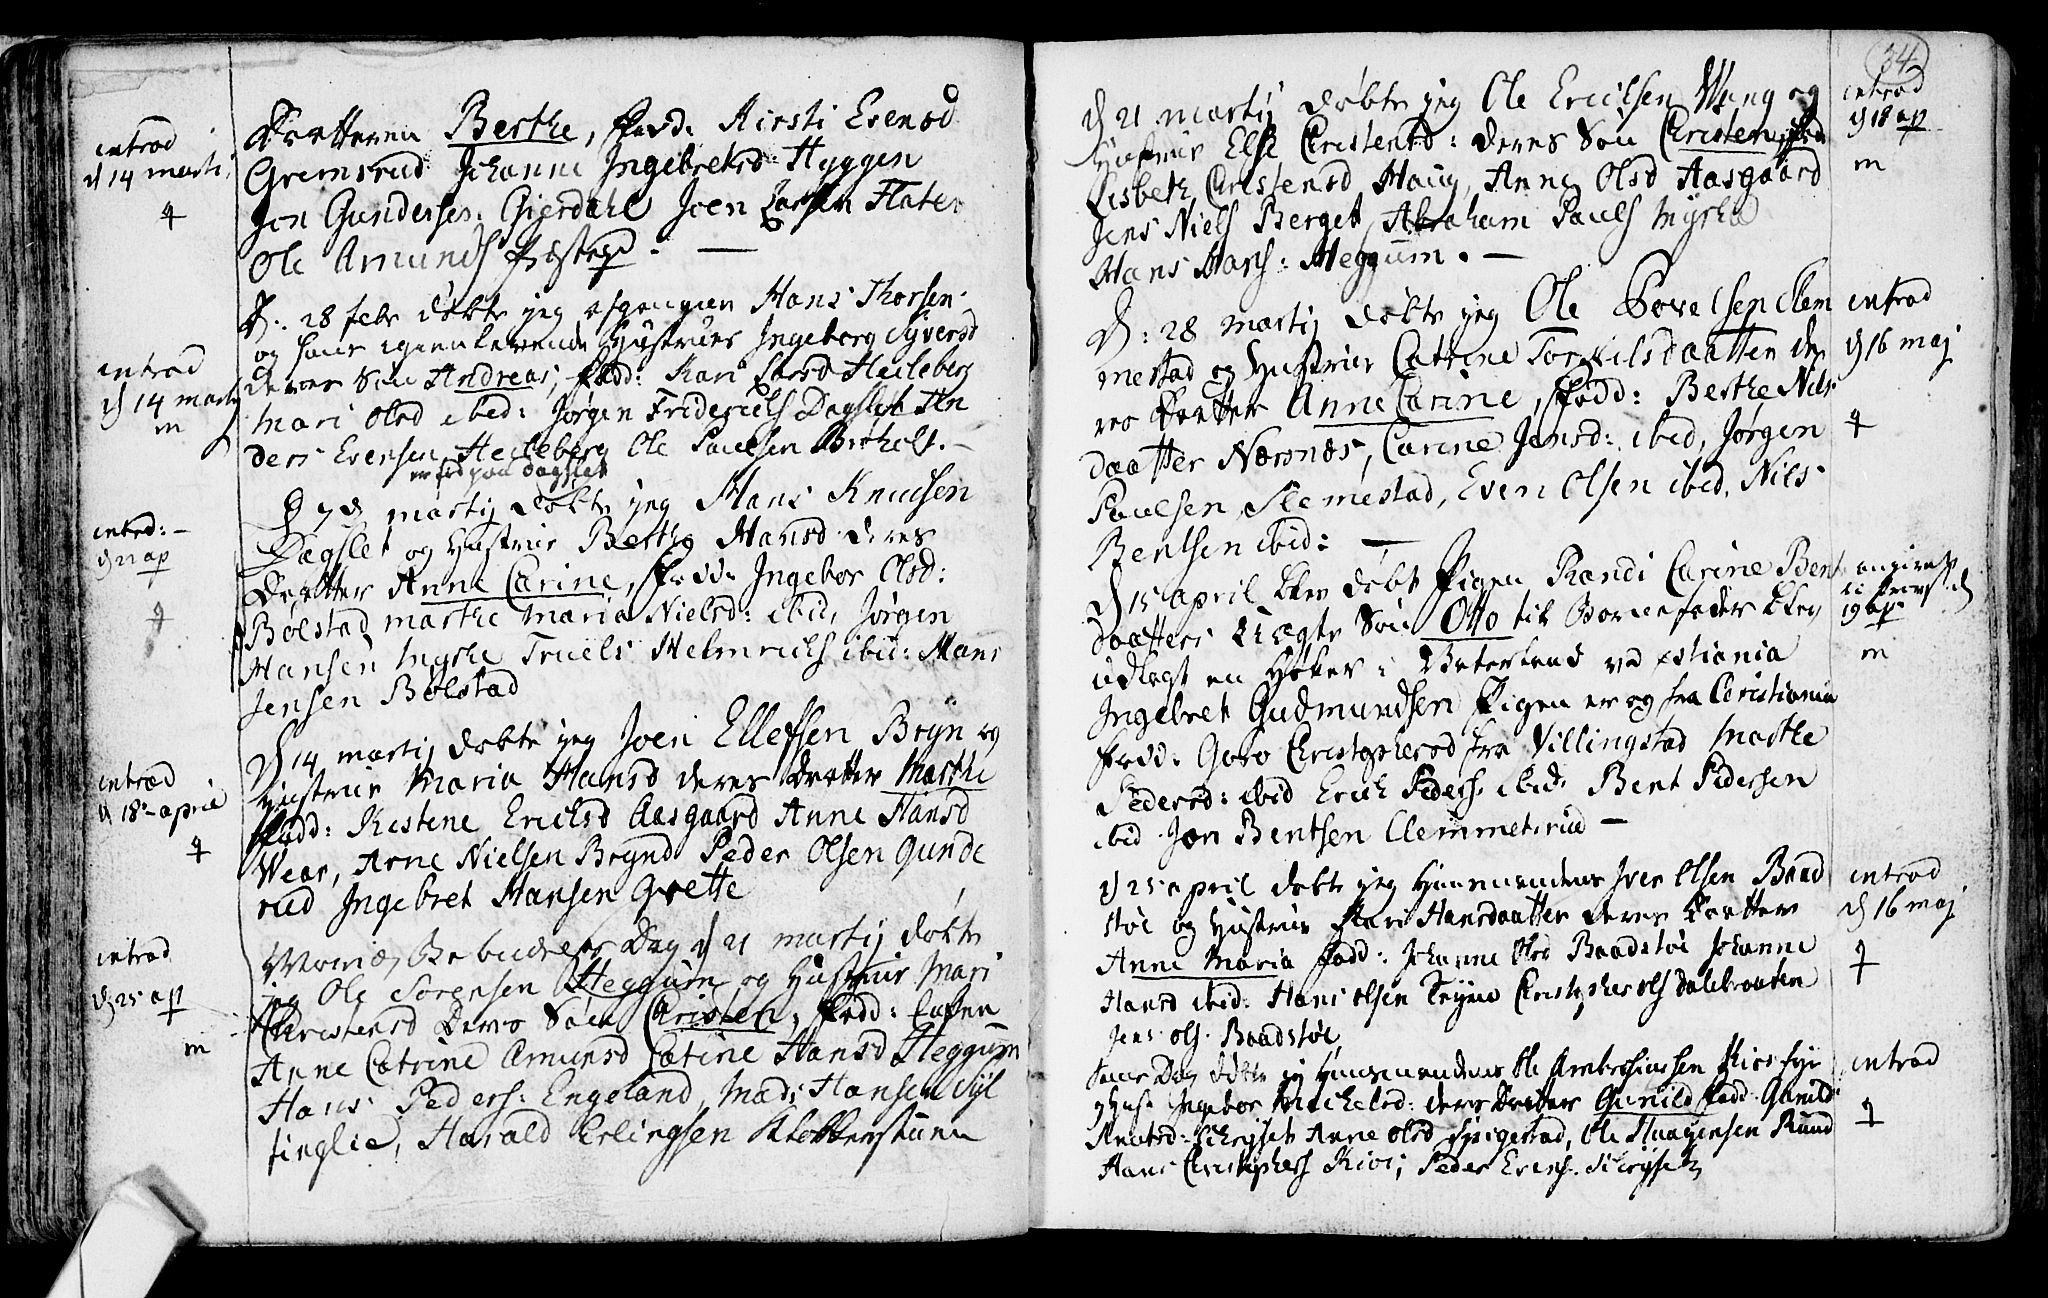 introd
d 14 martij
Daatteren Berthe, Fadd. Kirsti Evensd
Gremsrud Johanne Ingebretsd Hyggen
Jon Gunders. Gierdahl Joen Larsen Slater
Ole Amunds Præsteg. —
introd
d 14 martij
m
D. 28 febr døbte jeg afgangen Hans Thorsens
og hans igienlevende Hustrues Ingeborg Syversd
deres Søn Andreas, Fadd: Kari Larsd Heileberg
Mari Olsd ibid: Jørgen Friderichs Dagslet An
ders Evensen Heileberg Ole Paulsen Brøholt. —
er fød paa Dagslet
introd: —
d 11 ap
D 7 d martij døbte jeg Hans Knudsen
Dagslet og Hustrue Berthe Hansd deres
Daatter Anne Carine, Fadd. Ingebor Olsd:
Bølstad marthe maria Nielsd: ibid, Jørgen
Hansen Myrhe Truels Helmrichs ibid: Hans
Jensen Bølstad
introd
d 18 april
D 14 martij døbte jeg Joen Ellefsen Bryn og
Hustrue Maria Hansd deres Daatter Marthe
Fadd: Kistene Erichsd Aasgaard Anne Hansd
Wear, Arne Nielsen Brynd Peder Olsen Gunde
rud Ingebret Hansen Grette
introd
d 25 ap
m
Mariæ Bebudelses Dag d 21 martij døbte
jeg Ole Sørensen Heggum og Hustrue Mari
Christensd deres Søn Christen, Fadd:
Anne Catrine Amunsd Catrine Hansd Heggum
Hans Peders: Engeland, Mads Hansen Syl
tinglie, Harald Erlingsen Klokkerstuen
34
introd
d 18 ap
m
D 21 martij døbte jeg Ole Erichsen Wang og
Hustrue Else Christensd: deres Søn Christen, Fad
Lisbeth Christensd Haug, Anne Olsd Aasgaard
Jens Niels Berget, Abraham Pauls Myrhe
Hans Hans: Heggum. —
introd
d 16 maj
D: 28 martij døbte jeg Ole Povelsen Slem
mestad og Hustrue Catrine Torkilsdaatter de
res Daatter Anne Carine, Fadd: Berthe Niels
daatter Nærsnæs, Carine Jensd: ibid, Jørgen
Paulsen Slemestad, Even Olsen ibid, Nils
Bentsen ibid: —
angivet
19 ap
m
D 15 april blev døbt Pigen Randi Carine Bent
daatters uægte Søn Otto til Barnefader blev
udlagt en Høker i Vaterland ved xstiania
Ingebret Gudmundsen Pigen er og fra Christiania
Fadd: Goro Christophersd fra Villingstad Marthe
Pedersd: ibid Erich Peders ibid. Bent Pedersen
ibid Jon Bentsen Clemmetsrud —
introd
d 16 maj
d 25 april døbte jeg Huusmandens Iver Olsen Baad
støe og Hustrue Kari Hansdaatter deres Daatter
Anne Maria Fadd: Johanne Olsd Baadstøe Johanne
Hansd ibid: Hans Olsen Christopher Ols Dalebraaten
Jens Ols. Baadstøe
introd
Samme Dag døbte jeg Huusmandens Ole Ambrosiussen Kios
og Hust Ingebor Michelsd: deres Daatter Gunild Fadd. Gunild
Anne Olsd Spigestad, Ole Haagensen Ruud
Hans Christophers Kios, Peder Evens.